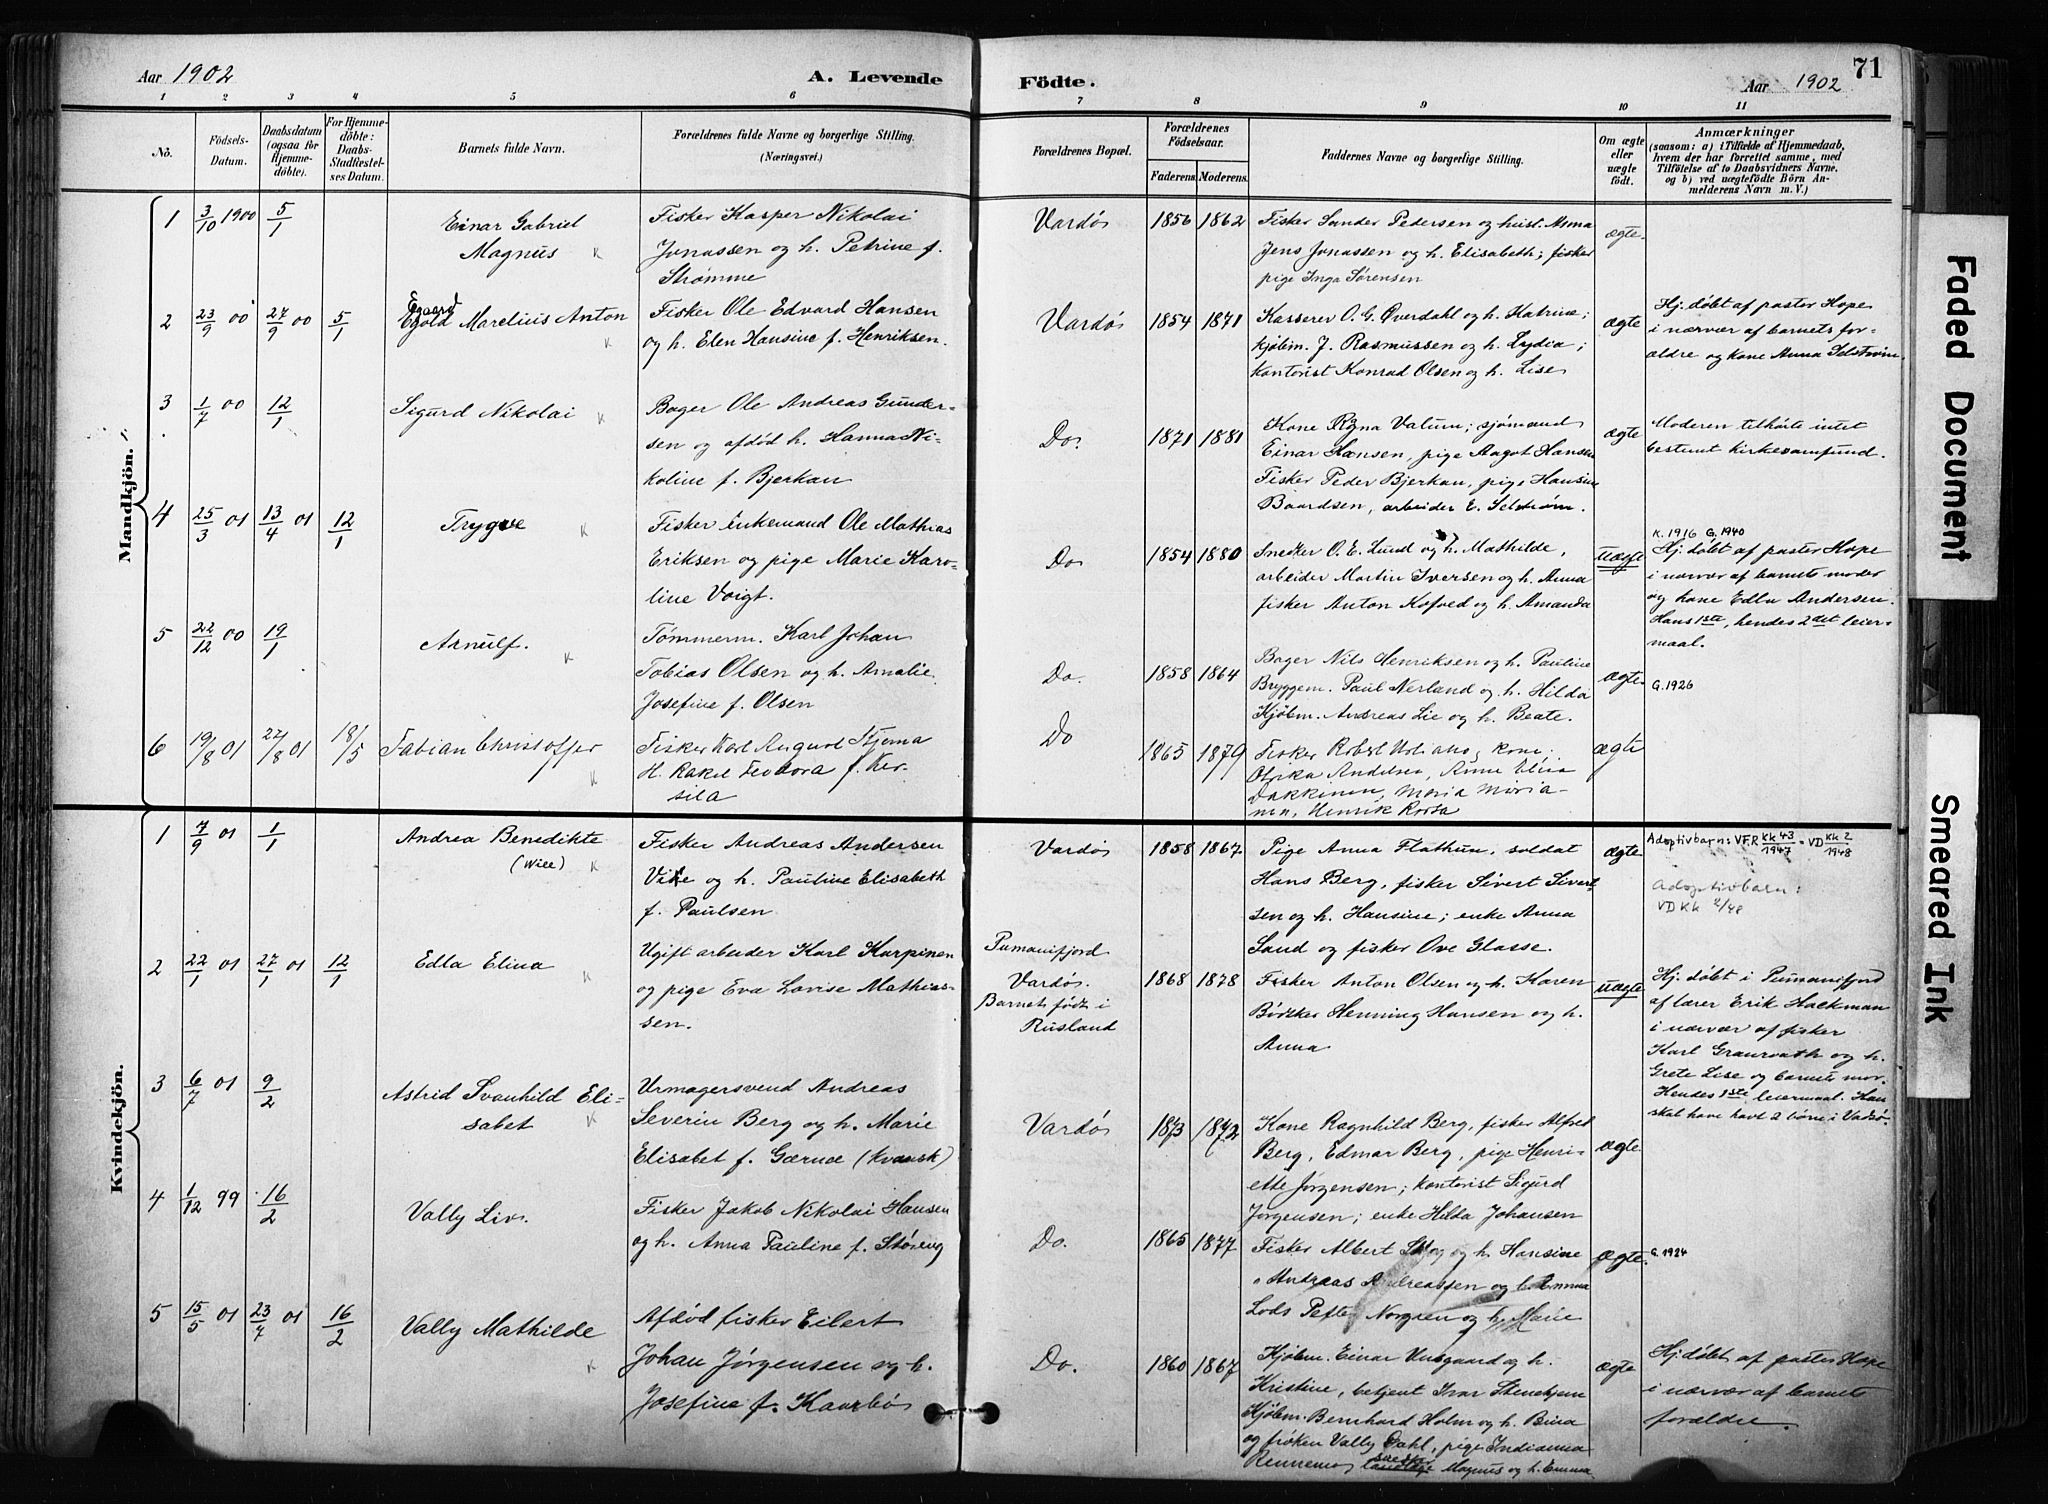 Aar 1902
A. Levende
Födte.
Aar 1902
71
1 2 3 4 5 6 7 8 9 10 11
No.
Födsels-Datum.
Daabsdatum (ogsaa for Hjemme-döbte).
For Hjemme-döbte: Daabs-Stadfæstel-ses Datum.
Barnets fulde Navn.
Forældrenes fulde Navne og borgerlige Stilling.
(Næringsvei.)
Forældrenes Bopæl.
Forældrenes Födselsaar.
Faderens. Moderens.
Faddernes Navne og borgerlige Stilling.
Om ægte eller uægte födt.
Anmærkninger
(saasom: a) i Tilfælde af Hjemmedaab,
hvem der har forrettet samme, med
Tilföielse af to Daabsvidners Navne,
og b) ved uægtefödte Börn An-
melderens Navn m. V.)
Mandkjön.
1 3/10 1900 5/1
Einar Gabriel
Magnus K
Fisker Kasper Nikolai
Jonassen og h. Petrine f.
Strømme
Vardø 1856 1862
Fisker Sander Pedersen og hust. Anna
Jens Jonassen og h. Elisabeth; fisker
pige Inga Sørensen
ægte
2 23/9 00 27/9 00 5/1
Egaard
Egold Marelius Anton K
Fisker Ole Edvard Hansen
og h. Elen Hansine f. Henriksen.
Vardø 1854 1871
Kasserer O. G. Øverdahl og h. Katrine;
kjøbm. J. Rasmussen og h. Lydia;
kontorist Konrad Olsen og h. Lise
ægte
Hj. døbt af pastor Hope
i nærvær af barnets for-
ældre og kone Anna Selstrøm.
3 1/7 00 12/1
Sigurd Nikolai K
Bager Ole Andreas Gunder-
sen og afdød h. Hanna Ni-
koline f. Bjerkan
Do. 1871 1881
Kone Ragna Valum; sjømand
Einar Hansen, pige Aagot Hansen
Fisker Peder Bjerkan, pige Hansine
Baardsen, arbeider E. Selstrøm.
ægte
Moderen tilhørte intet
bestemt kirkesamfund.
4 25/3 01 13/4 01 12/1
Trygve K
Fisker enkemand Ole Mathias
Eriksen og pige Marie Karo-
line Voigt.
Do 1854 1880
Snedker O. E. Lund og h. Mathilde,
arbeider Martin Iversen og h. Anna
fisker Anton Kofoed og h. Amanda
uægte
K. 1916 G. 1940
Hj. døbt af pastor Hope
i nærvær af barnets moder
og kone Edla Andersen.
Hans 1ste, hendes 2det leier-
maal.
5 22/12 00 19/1
Arnulf. K
Tømmerm. Karl Johan
Tobias Olsen og h. Amalie
Josefine f. Olsen
Do. 1858 1864
Bager Nils Henriksen og h. Pauline
Bryggem. Paul Nerland og h. Hilda
Kjøbm. Andreas Lie og h. Beate.
ægte
G. 1926
6 19/8 01 22/8 01 18/5
Fabian Christoffer K
Fisker Karl August
H. Rakel Teodora f. Ker-
sila
Do 1865 1879
Fisker Robert kone
Ulrika Andersen, Anna
Maria Moria-
nen, Henrik
ægte
Kvindekjön.
1 7/9 01 1/1
Andrea Benedikte
(Wiee) K
Fisker Andreas Andersen
Vike og h. Pauline Elisabeth
f. Paulsen
Vardø 1858 1867
Pige Anna Flathun, soldat
Hans Berg, fisker Sivert Sivert-
sen og h. Hansine; enke Anna
Sand og fisker Ove Glasse.
ægte
Adoptivbarn: VFR Kk 43/1947 = VD Kk 2/1948
Adoptivbarn:
VD Kk 2/48
2 22/1 01 27/1 01 12/1
Edla Elina K
Ugift arbeider Karl Karpinen
og pige Eva Lovise Mathias-
sen.
Pumanifjord
Vardø.
Barnet født i
Rusland
1868 1878
Fisker Anton Olsen og h. Karen
Bødker Henning Hansen og h.
Anna
uægte
Hj. døbt i Pumanifjord
af lærer Erik Hackman
i nærvær af fisker
Karl Granroath og h.
Grete Lise og barnets mor.
Hendes 1ste leiermaal. Han
skal have havt 2 børn i Vadsø.
3 6/7 01 9/2
Astrid Svanhild Eli-
sabet K
Urmagersvend Andreas
Severin Berg og h. Marie
Elisabet f. Gærne (Kvænsk)
Vardø 1873 1872
Kone Ragnhild Berg, fisker Alfred
Berg, Edmar Berg, pige Henri-
ette Jørgensen; kontorist Sigurd
Jørgensen; enke Hilda Johansen
ægte
4 1/12 99 16/2
Vally Liv.
Fisker Jakob Nikolai Hansen
og h. Anna Pauline f. Støreng
Do. 1865 1877
Fisker Albert og h. Hansine
" Andreas Andreassen og h. Emma
Lods Petter Norgren og h. Marie
ægte.
G. 1924
5 15/5 01 23/7 01 16/2
Vally Mathilde K
Afdød fisker Eilert
Johan Jørgensen og h.
Josefine f. Kaarbø
Do. 1860 1867
Kjøbm. Einar og h.
Kristine, betjent Ivar Stenehjem
Kjøbm. Bernhard Holm og h. Bina
og frøken Vally Dahl, pige Indianna
Rennemo, Magnus og h. Emma
ægte
Hj. døbt af pastor Hope
i nærvær af barnets
forældre.
Faded Document
Smeared Ink